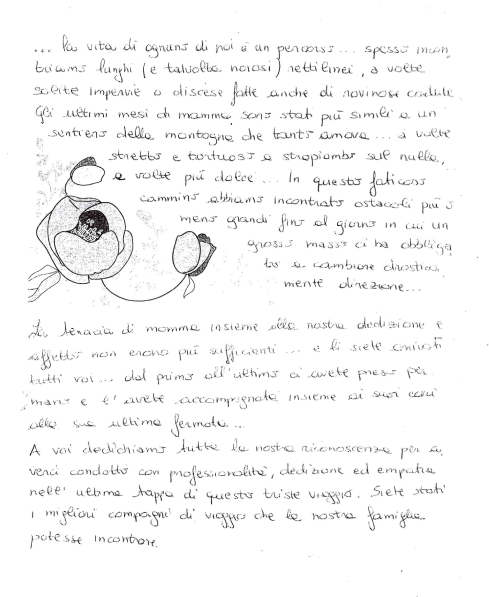 ... la vita di ognuno di noi è un percorso... spesso incon
triamo lunghi (e talvolta noiosi) rettilinei, a volte
salite impervie o discese fatte anche di rovinose cadute.
Gli ultimi mesi di mamma sono stati più simili a un
sentiero della montagna che tanto amava... a volte
stretto e tortuoso a strapiombo sul nulla,
a volte più dolce... In questo faticoso
cammino abbiamo incontrato ostacoli più o
meno grandi fino al giorno in cui un
grosso masso ci ha obbliga
to a cambiare drastica
mente direzione...
La tenacia di mamma insieme alla nostra dedizione e
affetto non erano più sufficienti... e lì siete arrivati
tutti voi... dal primo all'ultimo ci avete preso per
mano e l'avete accompagnata insieme ai suoi cari
alla sua ultima fermata...
A voi dedichiamo tutta la nostra riconoscenza per a
verci condotto con professionalità, dedizione ed empatia
nell'ultima tappa di questo triste viaggio. Siete stati
i migliori compagni di viaggio che la nostra famiglia
potesse incontrare.